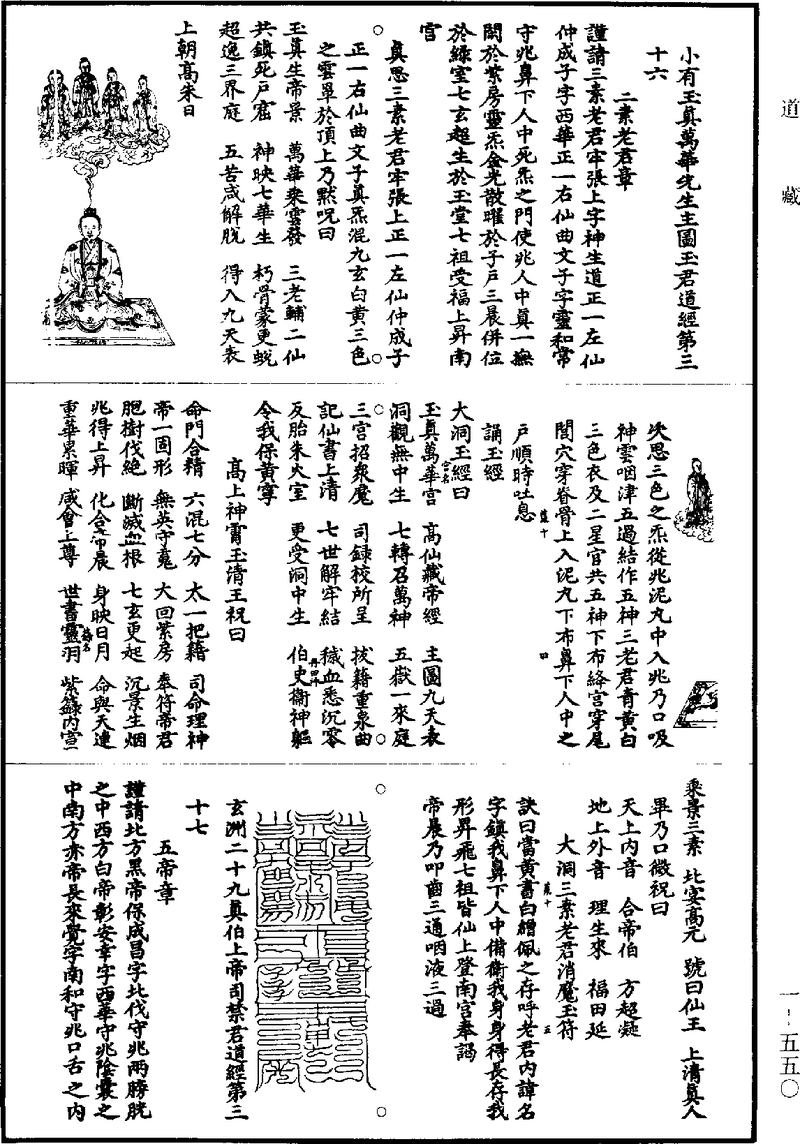 道藏
小有玉真萬華先生主圖玉君道經第三
十六
二素老君章
謹請三素老君牢張上字神生道正一左仙
仲成子字西華正一右仙曲文子字靈和常
守兆鼻下人中死炁之門使兆人中真一無
閡於紫房靈炁金光散曜於子戶三晨併位
於絳室七玄超生於玉堂七祖受福上昇南
宮
真思三素老君牢張上正一左仙仲成子
正一右仙曲文子真炁混九玄白黃三色
之雲罩於頂上乃默咒曰
玉真生帝景 萬華乘雲發 三老輔二仙
共鎮死戶窟 神映七華生 朽骨蒙更蛻
超逸三界庭 五苦咸解脫 得入九天表
上朝高朱日
次思三色之炁從兆泥丸中入兆乃口吸
神雲咽津五過結作五神三老君青黃白
三色衣及二星官共五神下布絳宮穿尾
閭穴穿脊骨上入泥丸下布鼻下人中之
戶順時吐息
誦玉經
大洞玉經曰
玉真萬華宮 高仙藏帝經 主圖九天表
洞觀無中生 七轉召萬神 五嶽一來庭
三官招眾魔 司錄校所呈 拔籍重泉曲
記仙書上清 七世解牢結 穢血悉沉零
反胎朱火室 更受洞中生 伯史衛神軀
令我保黃寧
高上神霄玉清王祝曰
命門合精 六混七分 太一把籍 司命理神
帝一固形 無英守寬 大回紫房 奉符帝君
胞樹伐絕 斷滅血根 七玄更起 沉景生烟
兆得上昇 化合帝晨 身映日月 命與天連
重華累暉 咸會上尊 世書靈羽 紫籙內宣
乘景三素 北宴高元 號曰仙王 上清真人
畢乃口微祝曰
天上內音 合帝伯 方超凝
地上外音 理生來 福田延
大洞三素老君消魔玉符
訣曰當黃書白繒佩之存呼老君內諱名
字鎮我鼻下人中備衛我身身得長存我
形昇飛七祖皆仙上登南宮奉謁
帝晨乃叩齒三通咽液三過
玄洲二十九真伯上帝司禁君道經第三
十七
五帝章
謹請北方黑帝保成昌字北伐守兆兩膀胱
之中西方白帝彰安幸字西華守兆陰囊之
中南方赤帝長來覺字南和守兆口舌之內
一--五五〇